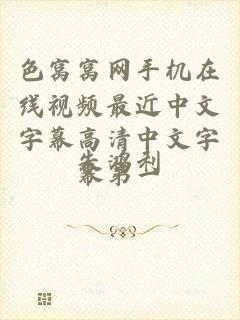 色窝窝网手机在
线视频最近中文
字幕高清中文字
幕第一
朱鸿利